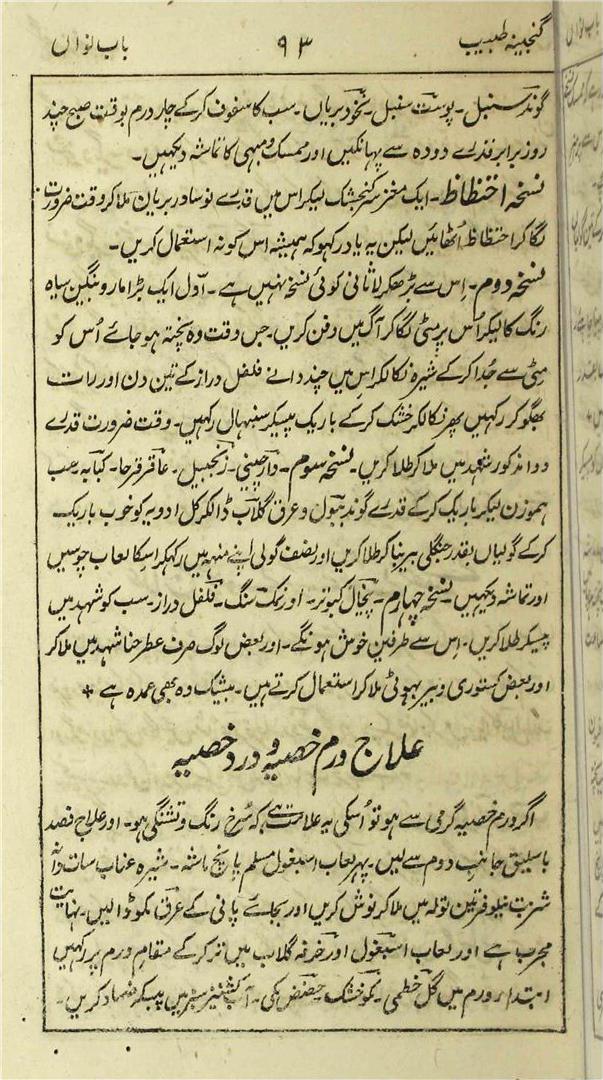 گنجینہ طبیب ۹۳ باب نواں
گوند سنبل۔ پوست سنبل۔ نخود بریاں۔ سب کا سفوف کرکے چار درم بوقت صبح چند
روز برابر قدرے دودہ سے پہانکیں اور ممسک و مبہی کا تماشہ دیکہیں۔
نسخہ احتظاظ۔ ایک مغز سر کنجشک لیکر اس میں قدرے نوسادر بریان ملا کر وقت ضرورت
لگا کر احتظاظ اُٹھائیں لیکن یہ یاد رکہو کہ ہمیشہ اس کو نہ استعمال کریں۔
نسخہ دوم۔ اِس سے بڑھکر لاثانی کوئی نسخہ نہیں ہے۔ اوّل ایک بڑا مارو بنگین سیاہ
رنگ کا لیکر اُس پر مٹی لگا کر آگ میں دفن کریں۔ جس وقت وہ پختہ ہو جائے اُس کو
مٹی سے جُدا کرکے شیرہ نکالکر اس میں چند دانے فلفل دراز کے تین دن اور رات
بھگو کر رکہیں پھر نکالکر خشک کرکے باریک پیسکر سنبہال رکہیں۔ وقت ضرورت قدرے
دوا مذکور شہد میں ملا کر طلا کریں۔ نسخہ سوم۔ دارچینی۔ زنجبیل۔ عاقرقرحا۔ کبابہ سب
ہموزن لیکر باریک کرکے قدرے گوند ببول و عرق گلاب ڈالکر کل ادویہ کو خوب باریک
کرکے گولیاں بقدر جنگلی بیر بنا کر طلا کریں اور نصف گولی اپنے منہہ میں رکہکر اسکا لعاب چوسیں
اور تماشہ دیکہیں۔ نسخہ چہارم۔ پنچال کبوتر۔ اور نمک سنگ۔ فلفل دراز۔ سب کو شہد میں
پیسکر طلا کریں۔ اِس سے طرفین خوش ہونگے۔ اور بعض لوگ صرف عطر حنا شہد میں ملا کر
اور بعض کستوری و بیر بہوٹی ملا کر استعمال کرتے ہیں۔ بیشیک وہ بھی عمدہ ہے
علاج ورم خصیہ و درد خصیہ
اگر ورم خصیہ گرمی سے ہو تو اُسکی یہ علامت ہے کہ سُرخ رنگ و تشنگی ہو۔ اور علاج فصد
باسلیق جانب دوم سے لیں۔ پہر لعاب اسبغول مسلم پانچ ماشہ۔ شیرہ عناب سات دانہ
شربت نیلوفر تین تولہ میں ملا کر نوش کریں اور بجائے پانی کے عرق مکو ڈالیں۔ نہایت
مجرب ہے اور لعاب اسبغول اور خرفہ گلاب میں تر کرکے مقام ورم پر رکہیں
ابتداء ورم میں گل خطمی۔ مکو خشک۔ حضض مکی۔ آب کشنیز سبز میں پیسکر ضماد کریں۔